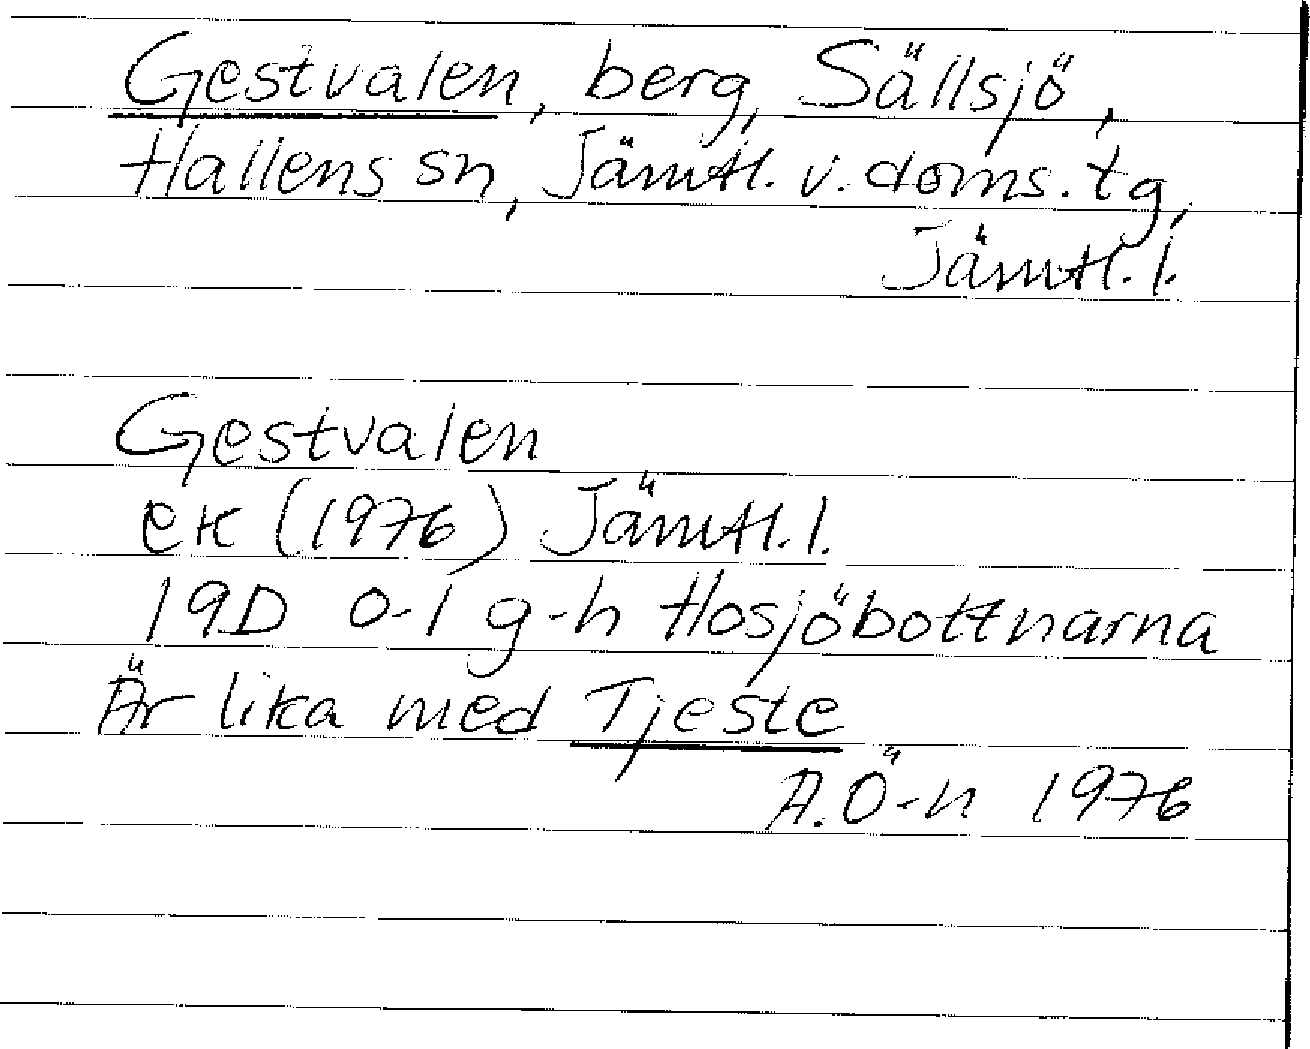 Gestvalen, berg, Sällsjö,
Hallens sn, Jämtl. v. doms. tg,
Jämtl. l.
Gestvalen
ek (1976) Jämtl. l.
19D 0-1 g-h Hosjöbottnarna
Är lika med Tjeste
A. Ö-n 1976